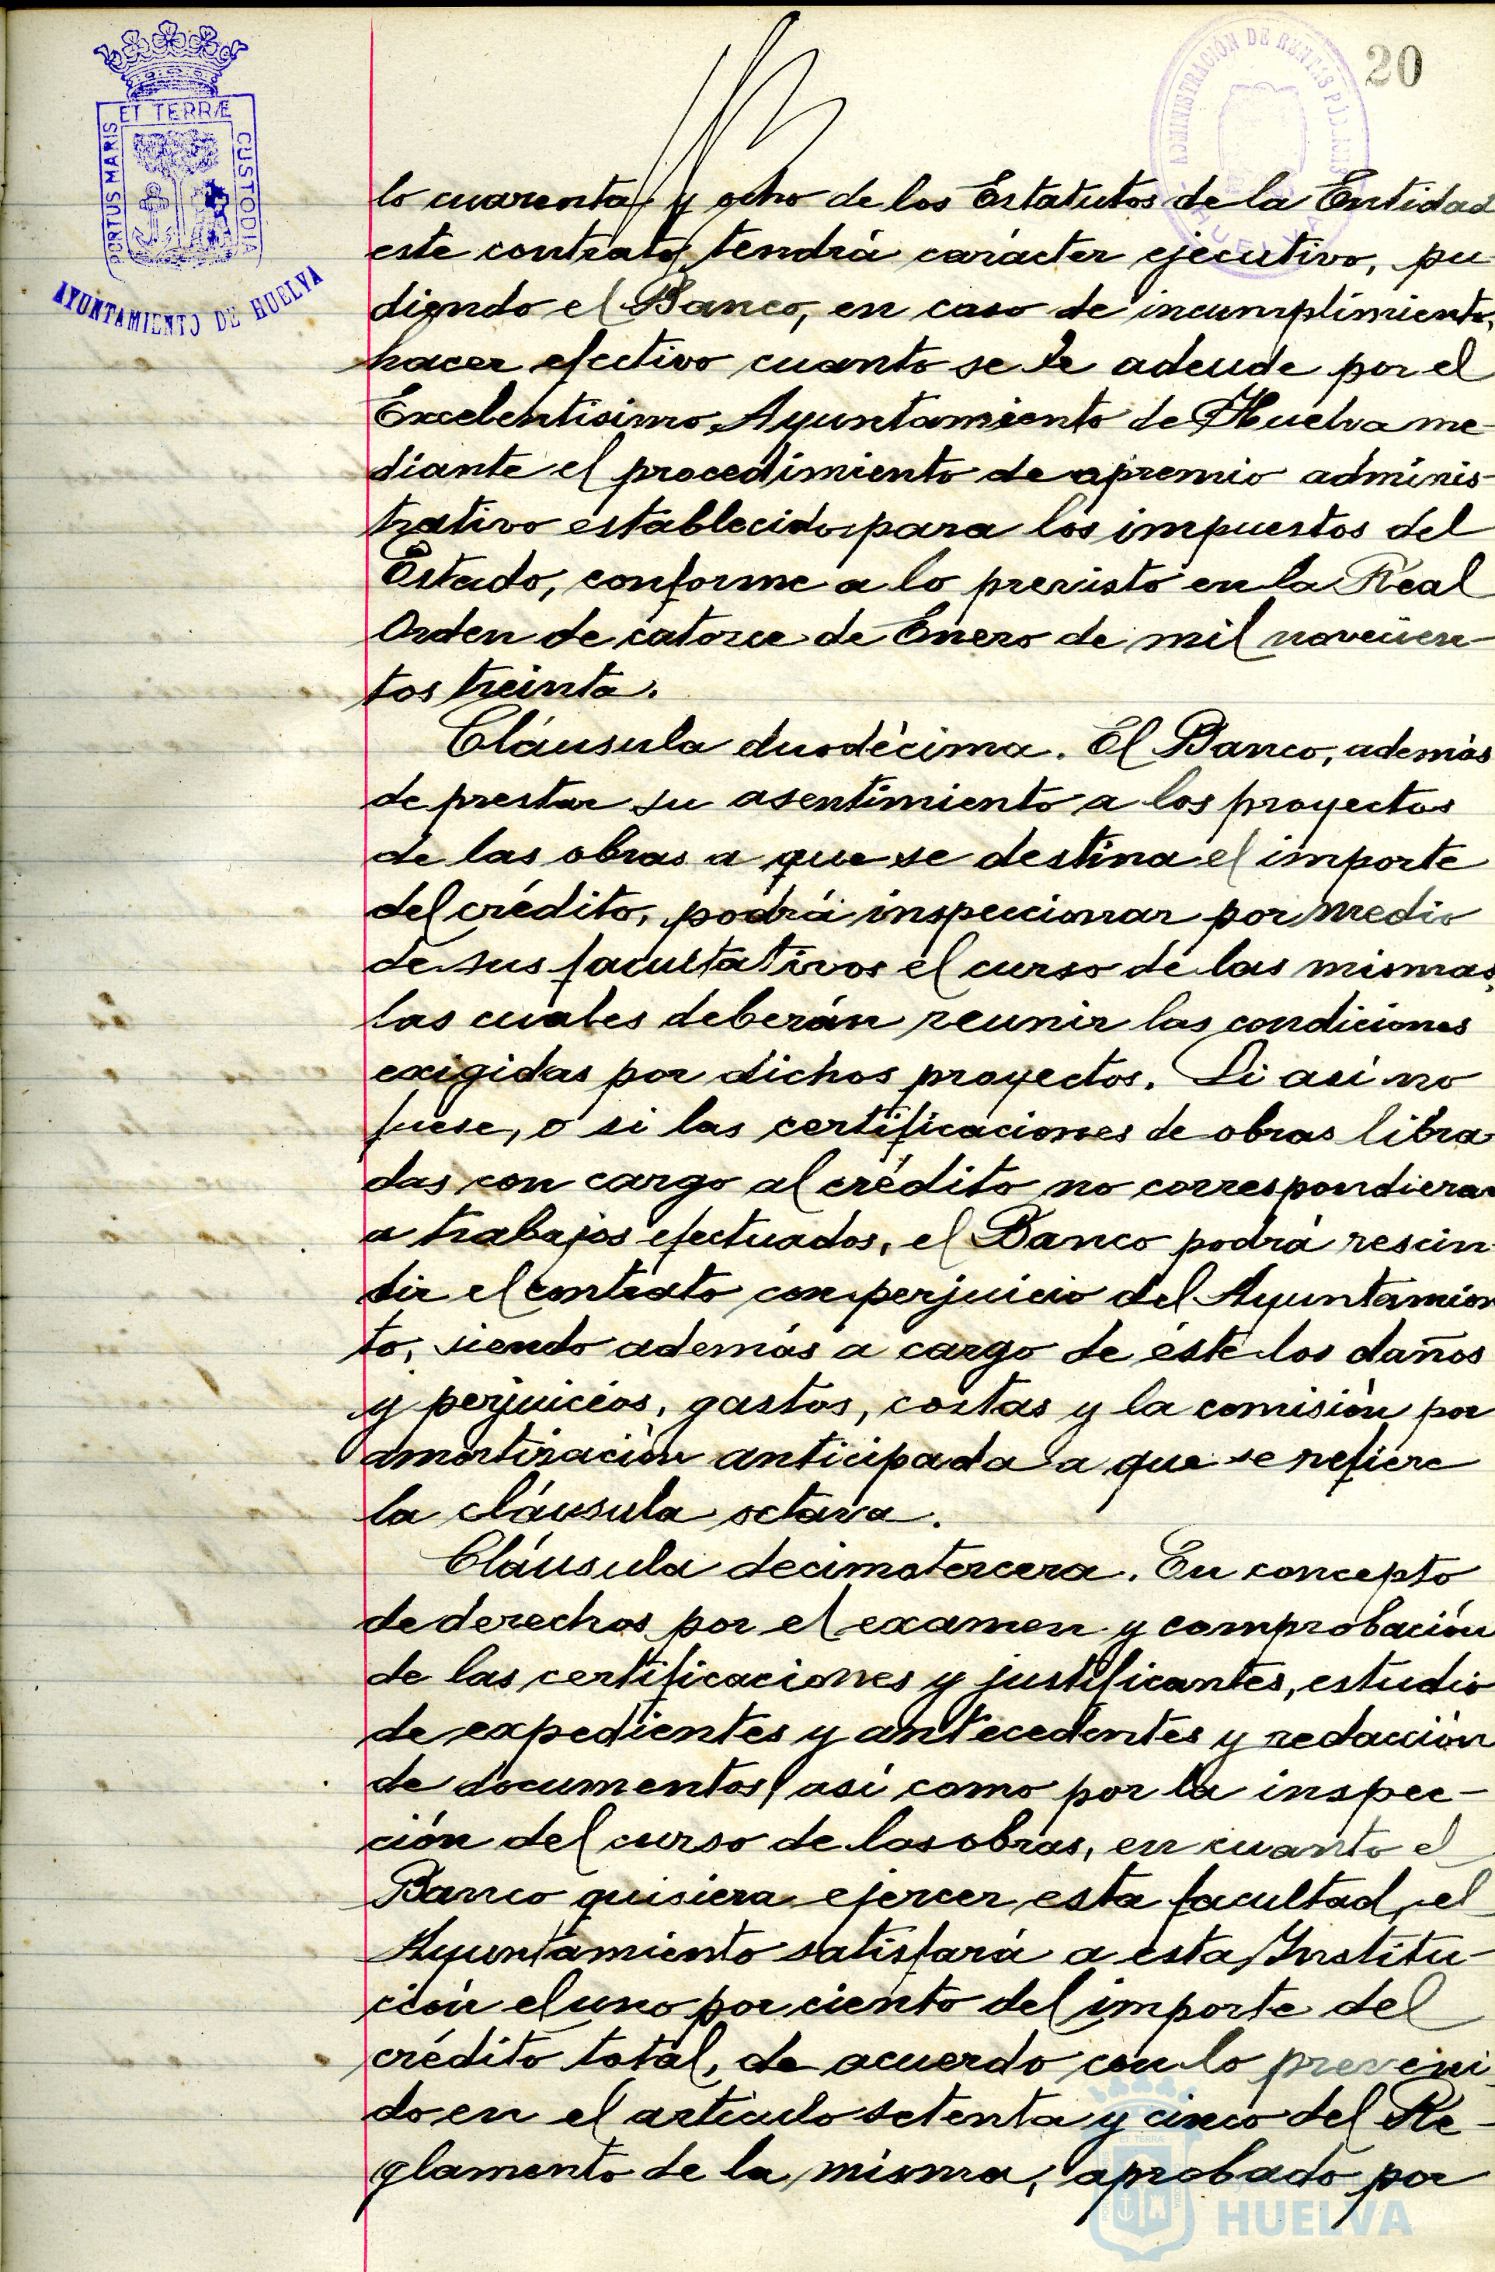 20
ET TERRÆ
PORTUS MARIS
CUSTODIA
AYUNTAMIENTO DE HUELVA
ADMINISTRACIÓN DE RENTAS
HUELVA
lo cuarenta y ocho de los Estatutos de la Entidad
este contrato tendrá carácter ejecutivo, pu
diendo el Banco, en caso de incumplimiento,
hacer efectivo cuanto se le adeude por el
Excelentísimo Ayuntamiento de Huelva me-
diante el procedimiento de apremio adminis-
trativo establecido para los impuestos del
Estado, conforme a lo previsto en la Real
Orden de catorce de Enero de mil novecien-
tos treinta.
Cláusula duodécima. El Banco, además
de prestar su asentimiento a los proyectos
de las obras a que se destina el importe
del crédito, podrá inspeccionar por medio
de sus facultativos el curso de las mismas,
las cuales deberán reunir las condiciones
exigidas por dichos proyectos. Si así no
fuese, o si las certificaciones de obras libra
das con cargo al crédito no correspondieran
a trabajos efectuados, el Banco podrá rescin-
dir el contrato con perjuicio del Ayuntamien
to, siendo además a cargo de éste los daños
y perjuicios, gastos, costas y la comisión por
amortización anticipada a que se refiere
la cláusula octava.
Cláusula decimotercera. En concepto
de derechos por el examen y comprobación
de las certificaciones y justificantes, estudio
de expedientes y antecedentes y redacción
de documentos, así como por la inspec-
ción del curso de las obras, en cuanto el
Banco quisiera ejercer esta facultad, el
Ayuntamiento satisfará a esta Institu-
ción el uno por ciento del importe del
crédito total, de acuerdo con lo preveni
do en el artículo setenta y cinco del Re-
glamento de la misma, aprobado por
HUELVA